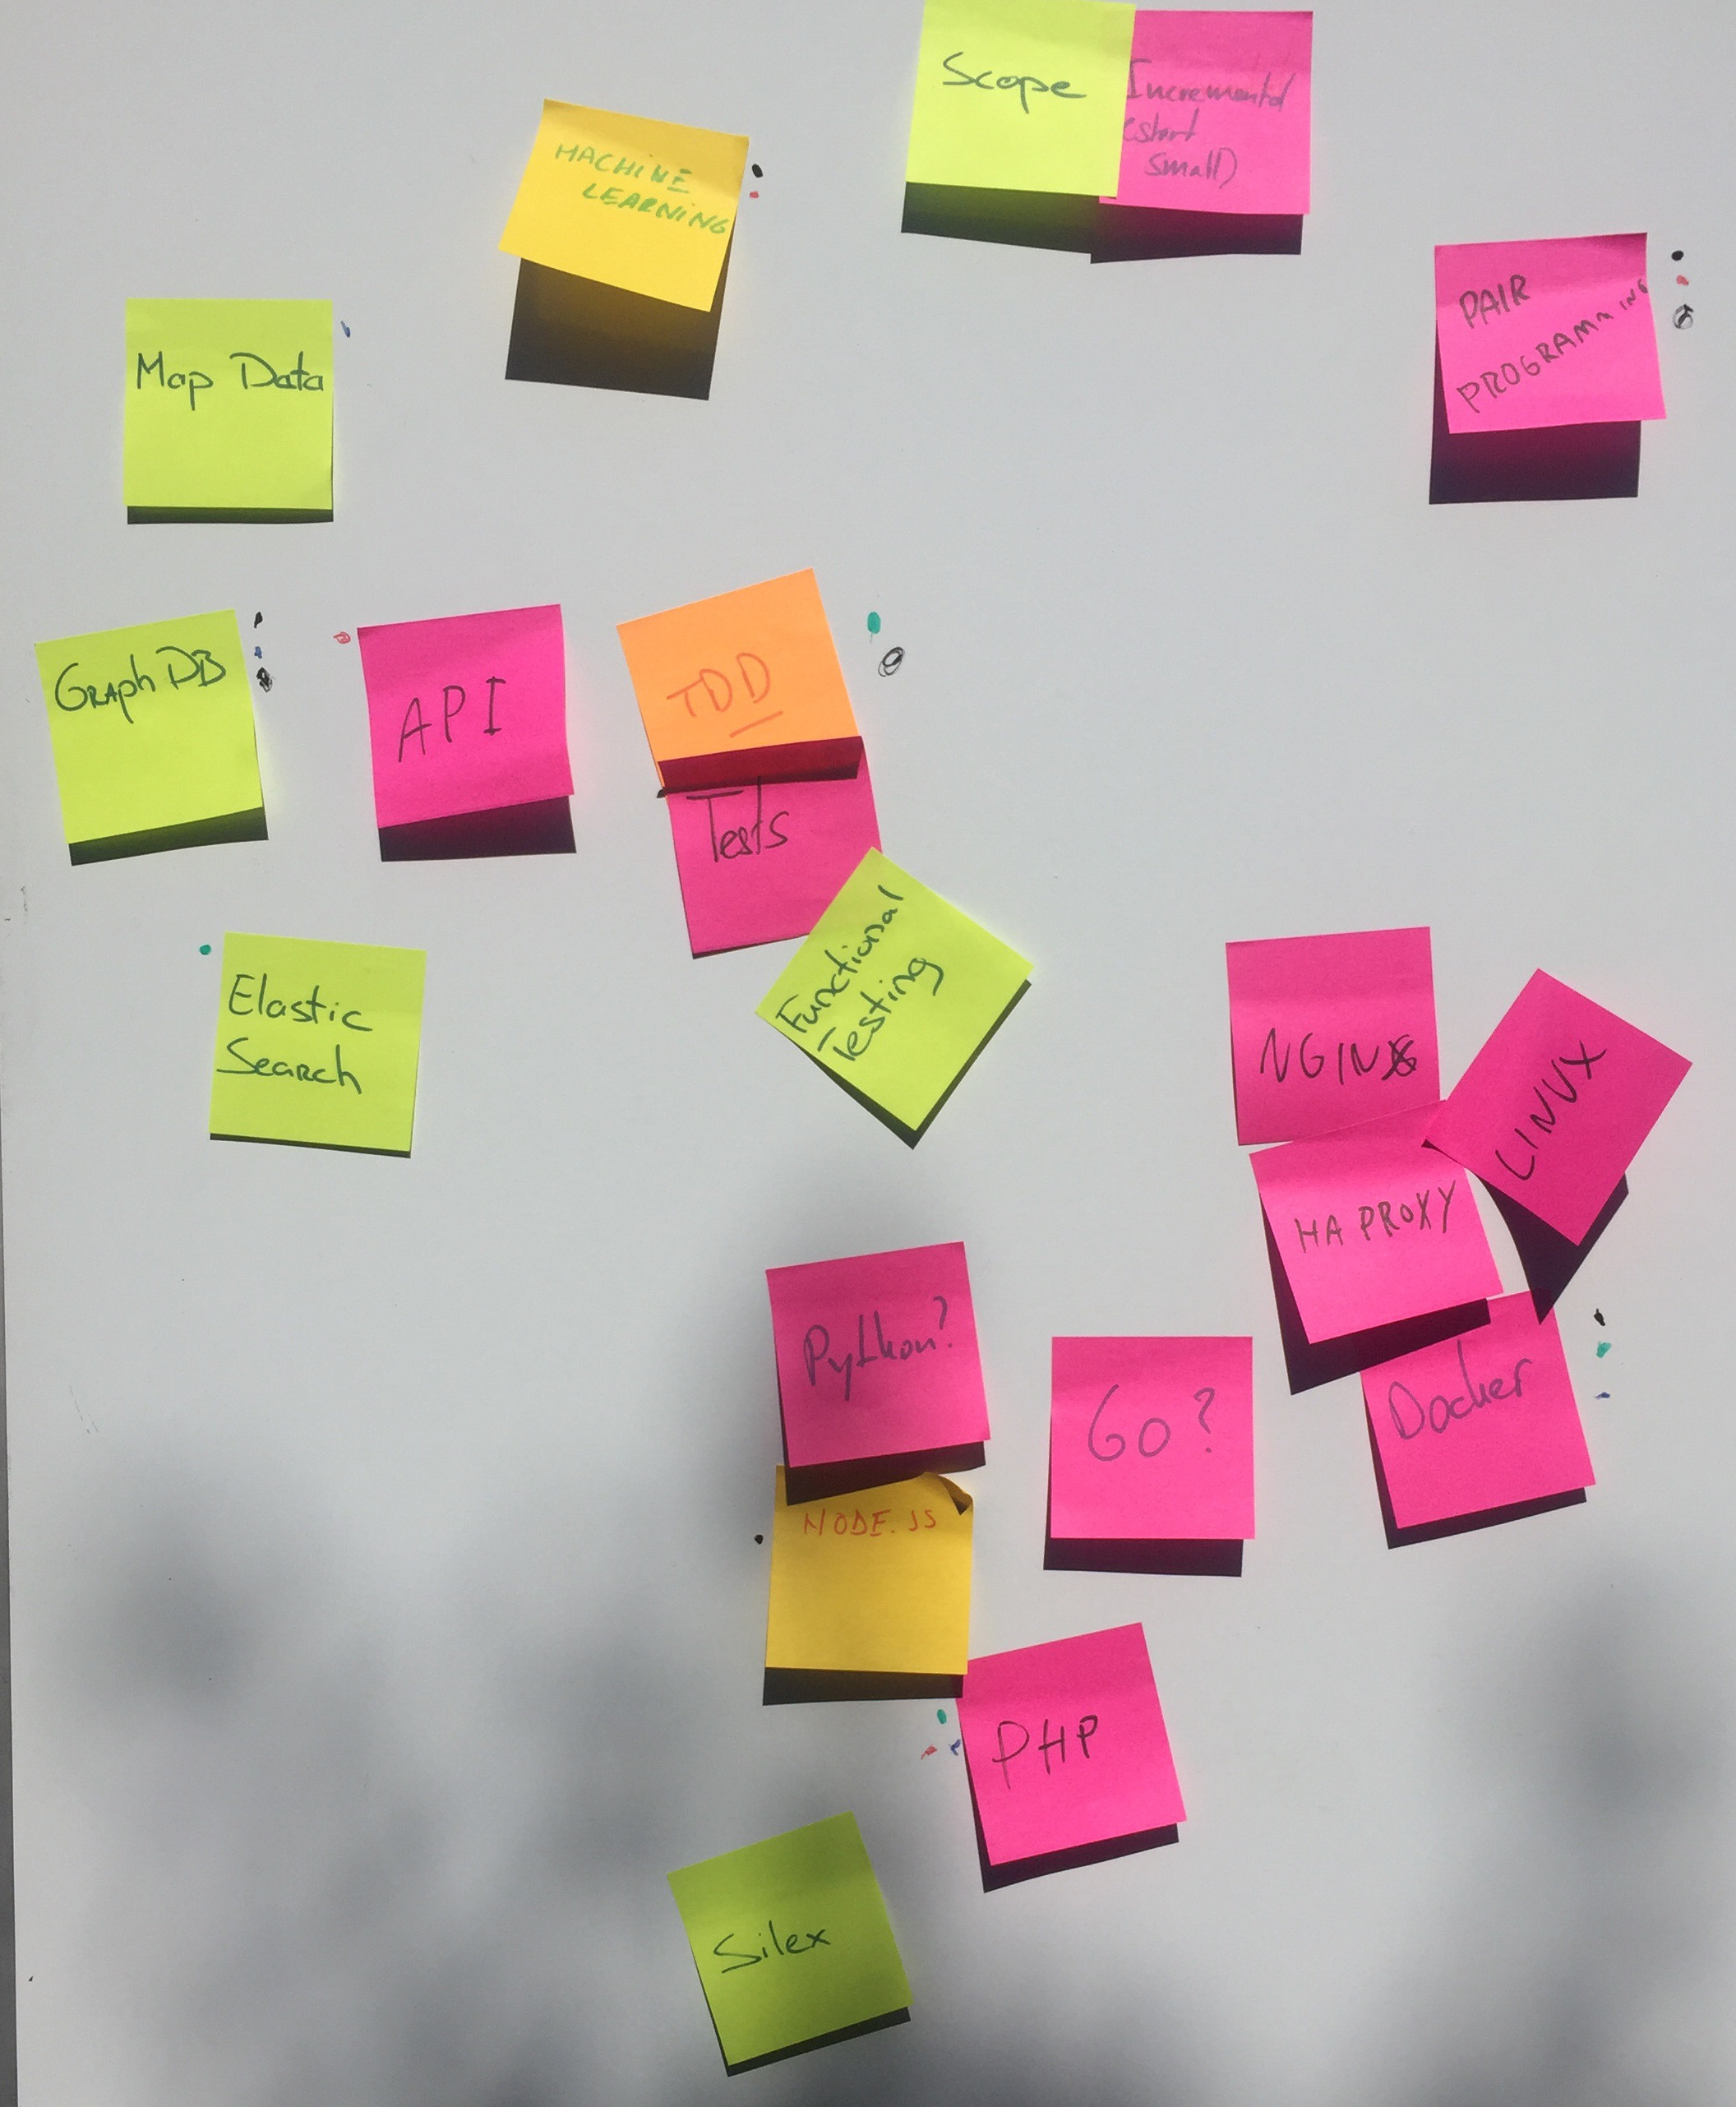 Scope
Incremental
(start
small)
MACHINE
LEARNING
PAIR
PROGRAMMING
Map Data
GRAPH DB
API
TDD
Tests
Functional
Testing
Elastic
Search
NGINX
LINUX
HA PROXY
Python?
Go?
Docker
NODE.JS
PHP
Silex